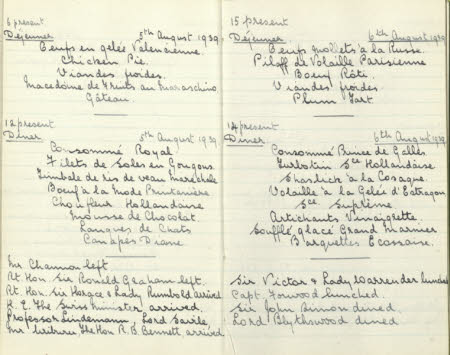 6 present
Déjeuner 5th August 1939.
Oeufs en gelée Valencienne.
Chicken Pie.
Viandes froides.
Macedoine de Fruits au Maraschino
Gâteau
12 present
Diner 5th August 1939.
Consommé Royal
Filets de Soles en Goujons
Timbale de ris de veau Maréchale
Boeuf à la mode Printanière
Choufleur Hollandaise
Mousse de Chocolat
Langues de Chats
Canapes Diane
Mr Channon left
Rt. Hon. Sir Ronald Graham left.
Rt. Hon. Sir Horace & Lady Rumbold arrived
H. E. The Swiss Minister arrived.
Professor Lindemann, Lord Savile,
The Hon R. B. Bennett arrived
15 present
Déjeuner 6th August 1939
Oeufs mollets à la Russe.
Pilaff de Volaille Parisienne
Boeuf Rôti
Viandes froides
Plum Tart
14 present
Diner 6th August 1939
Consommé Prince de Galles
Turbotin Sce Hollandaise
Shaslick à la Cosaque.
Volaille à la Gelée d'Estragon
Sce Suprême
Artichauts Vinaigrette.
Soufflé glacé Grand Marnier
Barquettes Ecossaise.
Sir Victor & Lady Warrender lunched
Capt. Forwood lunched.
Sir John Simon dined.
Lord Blythswood dined